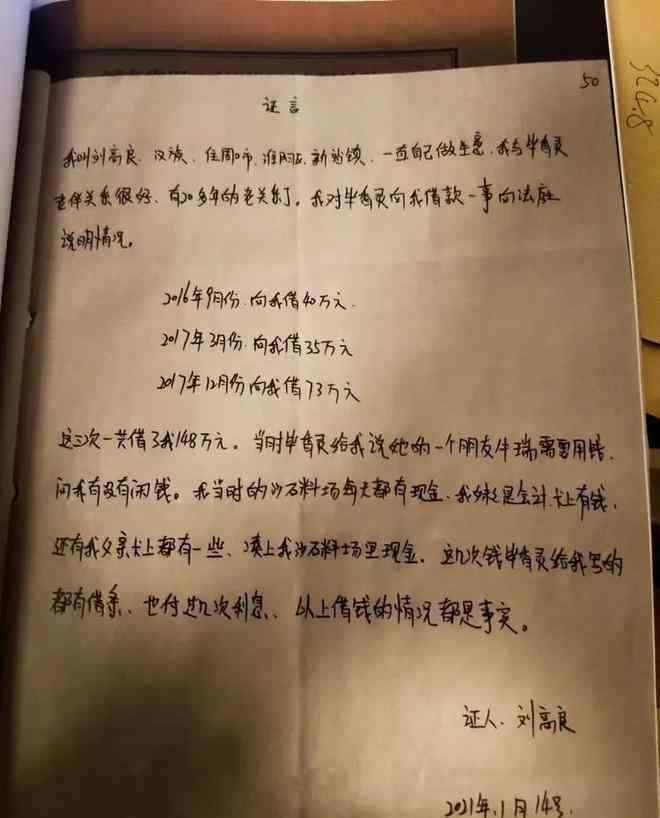 50
证言
我叫刘高良、汉族、住周口市、淮阳区、新站镇、一直自己做生意、我与毕
关系很好、有20多年的老关系了。我对毕向我借款一事向法庭
说明情况。
2016年9月份.向我借40万元.
2017年3月份.向我借35万元
2017年12月份向我借73万元
这三次一共借了我148万元。当时毕给我说她的一个朋友牛瑞需要用钱.
问我有没有闲钱。我当时的沙石料场每天都有现金.我是会计卡上有钱.
还有我父亲卡上都有一些、凑上我沙石料场里现金.这几次钱毕给我写的
都有借条、也付过几次利息、以上借钱的情况都是事实。
证人.刘高良
2021年.1月14号.